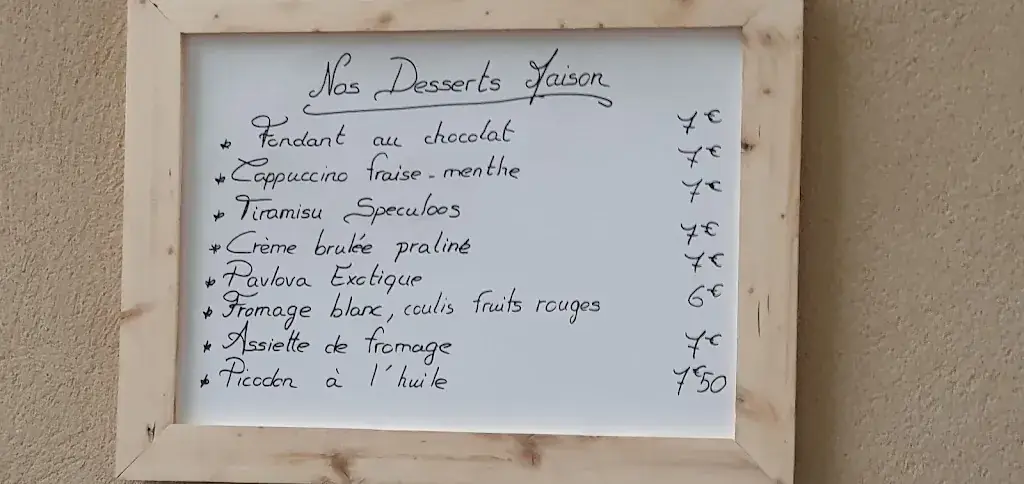 Nos Desserts Maison
* Fondant au chocolat 7€
* Cappuccino fraise-menthe 7€
* Tiramisu Speculoos 7€
* Crème brulée praliné 7€
* Pavlova Exotique 7€
* Fromage blanc, coulis fruits rouges 6€
* Assiette de fromage 7€
* Picodon à l'huile 7€50